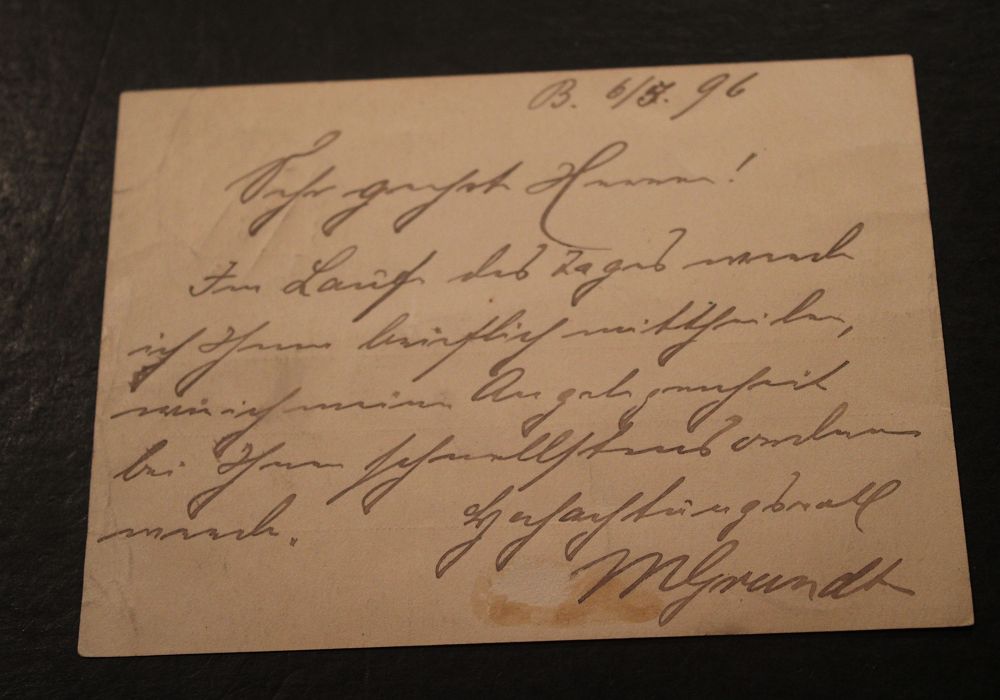 B. 6/5. 96
Sehr geehrte Herren!
Im Laufe des Tages werde
ich Ihnen brieflich mittheilen,
wie ich meine Angelegenheit
bei Ihnen schnellstens ordnen
werde.
Hochachtungsvoll
MGrundt